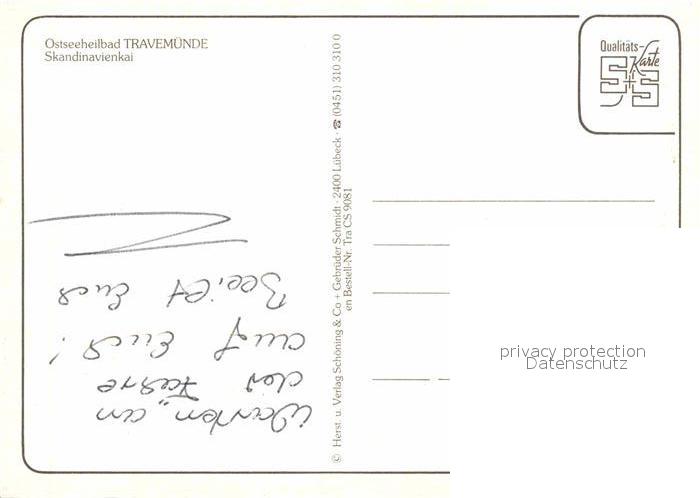 Ostseeheilbad TRAVEMÜNDE
Skandinavienkai
Qualitäts-
Karte
S+S
© Herst. u. Verlag Schöning & Co + Gebrüder Schmidt · 2400 Lübeck · ☎ (0451) 310 310 0
en Bestell-Nr. Tra CS 9081
Warten „an
der Fähre
auf Euch!
Beeilt Euch
privacy protection
Datenschutz